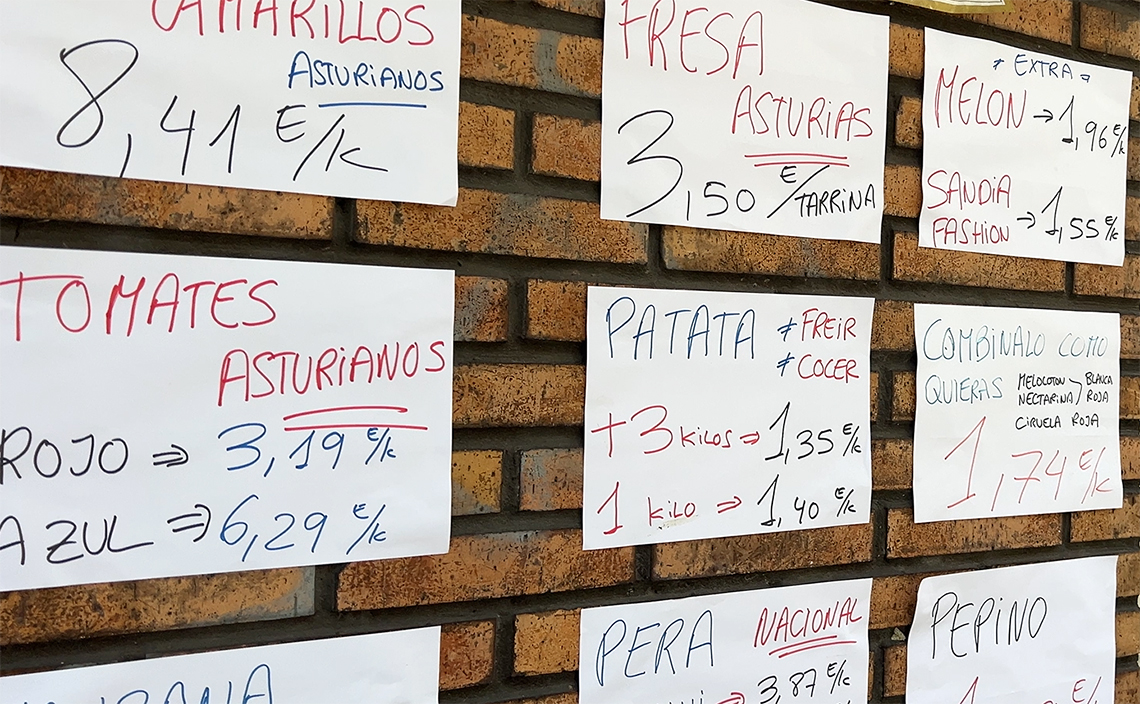 AMARILLOS
ASTURIANOS
8,41 E/K
FRESA
ASTURIAS
3,50 E/TARRINA
* EXTRA *
MELON → 1,96 E/K
SANDIA
FASHION → 1,55 E/K
TOMATES
ASTURIANOS
ROJO ⇒ 3,19 E/K
AZUL ⇒ 6,29 E/K
PATATA
* FREIR
* COCER
+3 KILOS ⇒ 1,35 E/K
1 KILO ⇒ 1,40 E/K
COMBINALO COMO
QUIERAS
MELOCOTON BLANCA
NECTARINA ROJA
CIRUELA ROJA
1,74 E/K
PERA
NACIONAL
⇒ 3,87 E/K
PEPINO